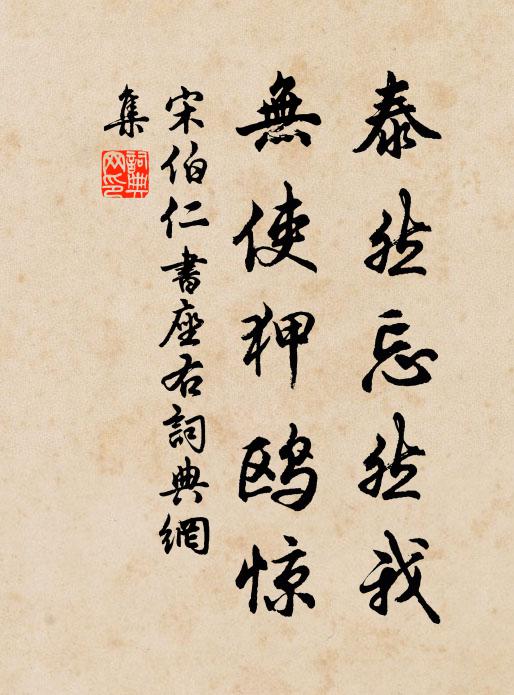 泰然忘然我
無使狎鸥惊
宋伯仁書座右詞典網
集
詞典網印